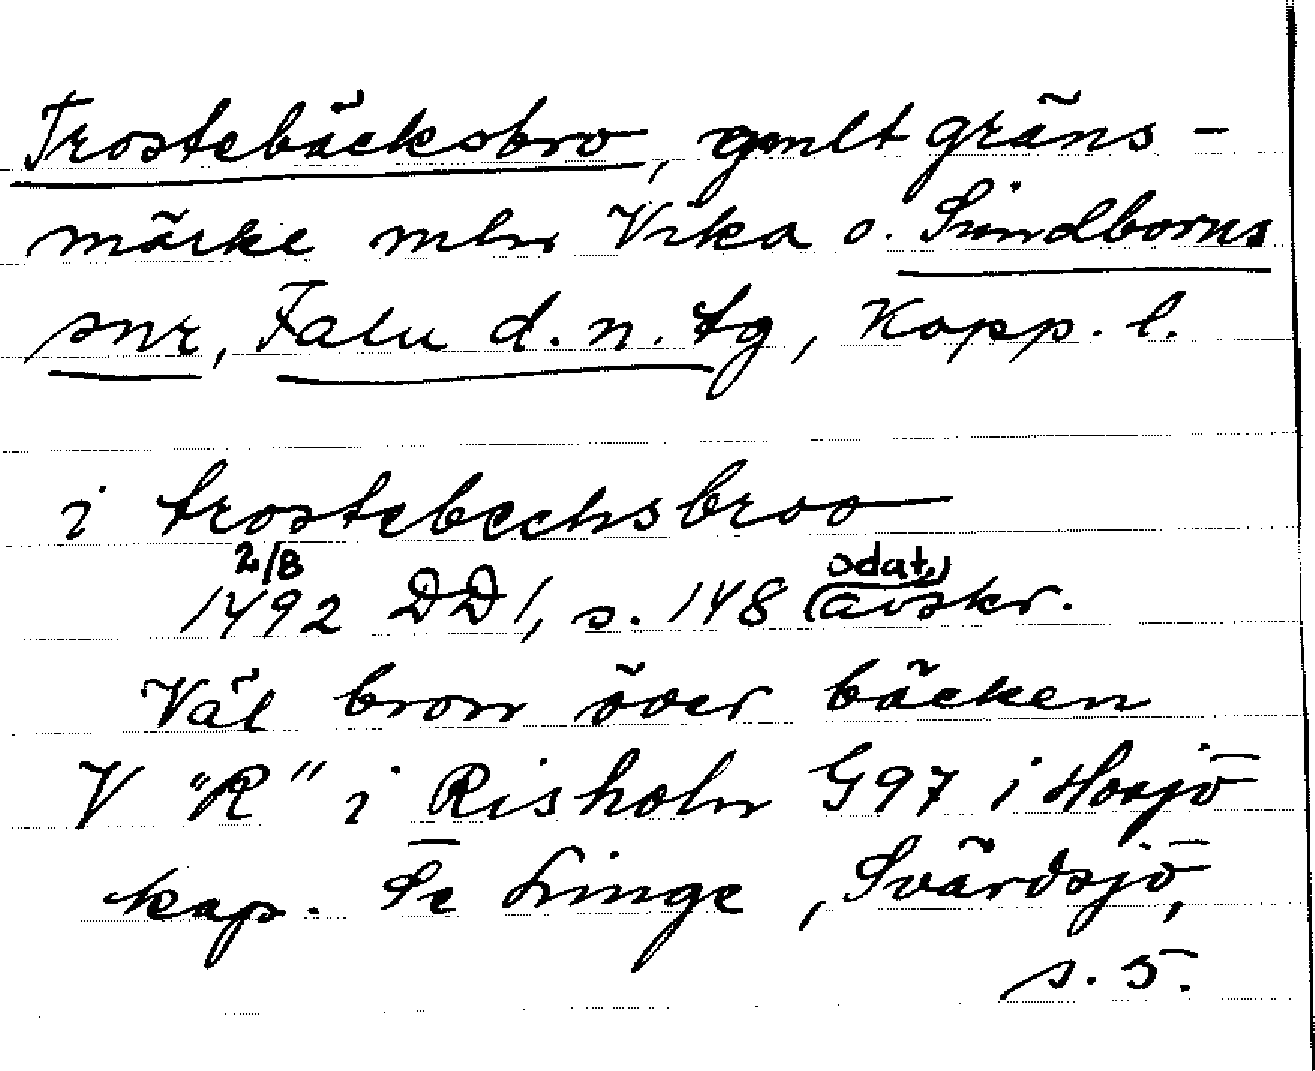 Trostebäcksbro, gmlt gräns-
märke mln Vika o. Sundborns
snr, Falu d. n. tg, Kopp. l.
i trostebechsbroo
2/8 odat.
1492 DD 1, s. 148 (avskr.)
Väl bron över bäcken
V "R" i Risholn G97 i Hosjö
kap. Se Linge, Svärdsjö,
s. 5.